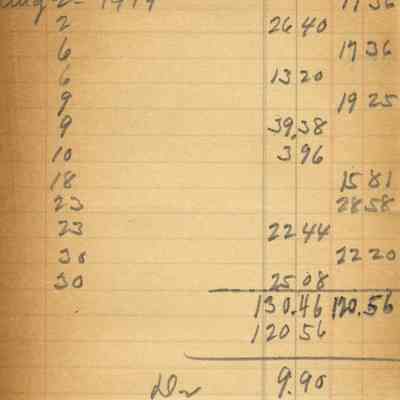 Aug 2- 1919 17 36
2 26 40
6 17 36
6 13 20
9 19 25
9 39.38
10 3 96
18 15 81
23 28 58
23 22 44
30 22 20
30 25 08
130.46 120.56
120 56
9.90